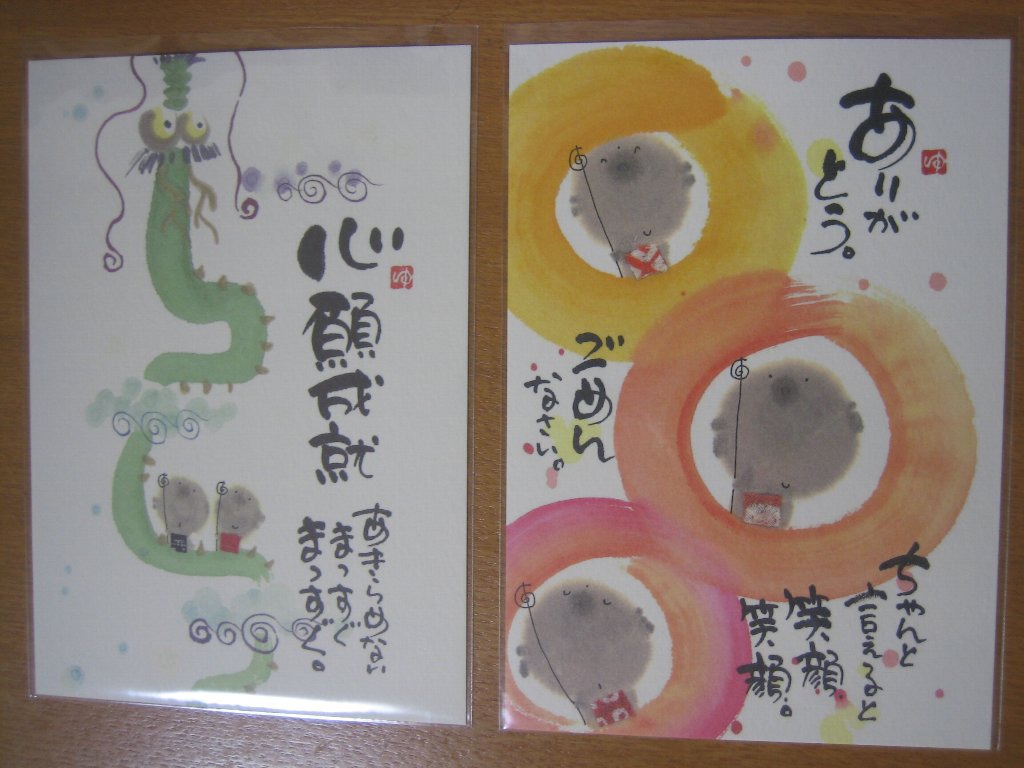 心願成就
あきらめない
まっすぐ
まっすぐ。
ゆ
ありが
とう。
ゆ
ごめん
なさい。
ちゃんと
言えると
笑顔
笑顔。